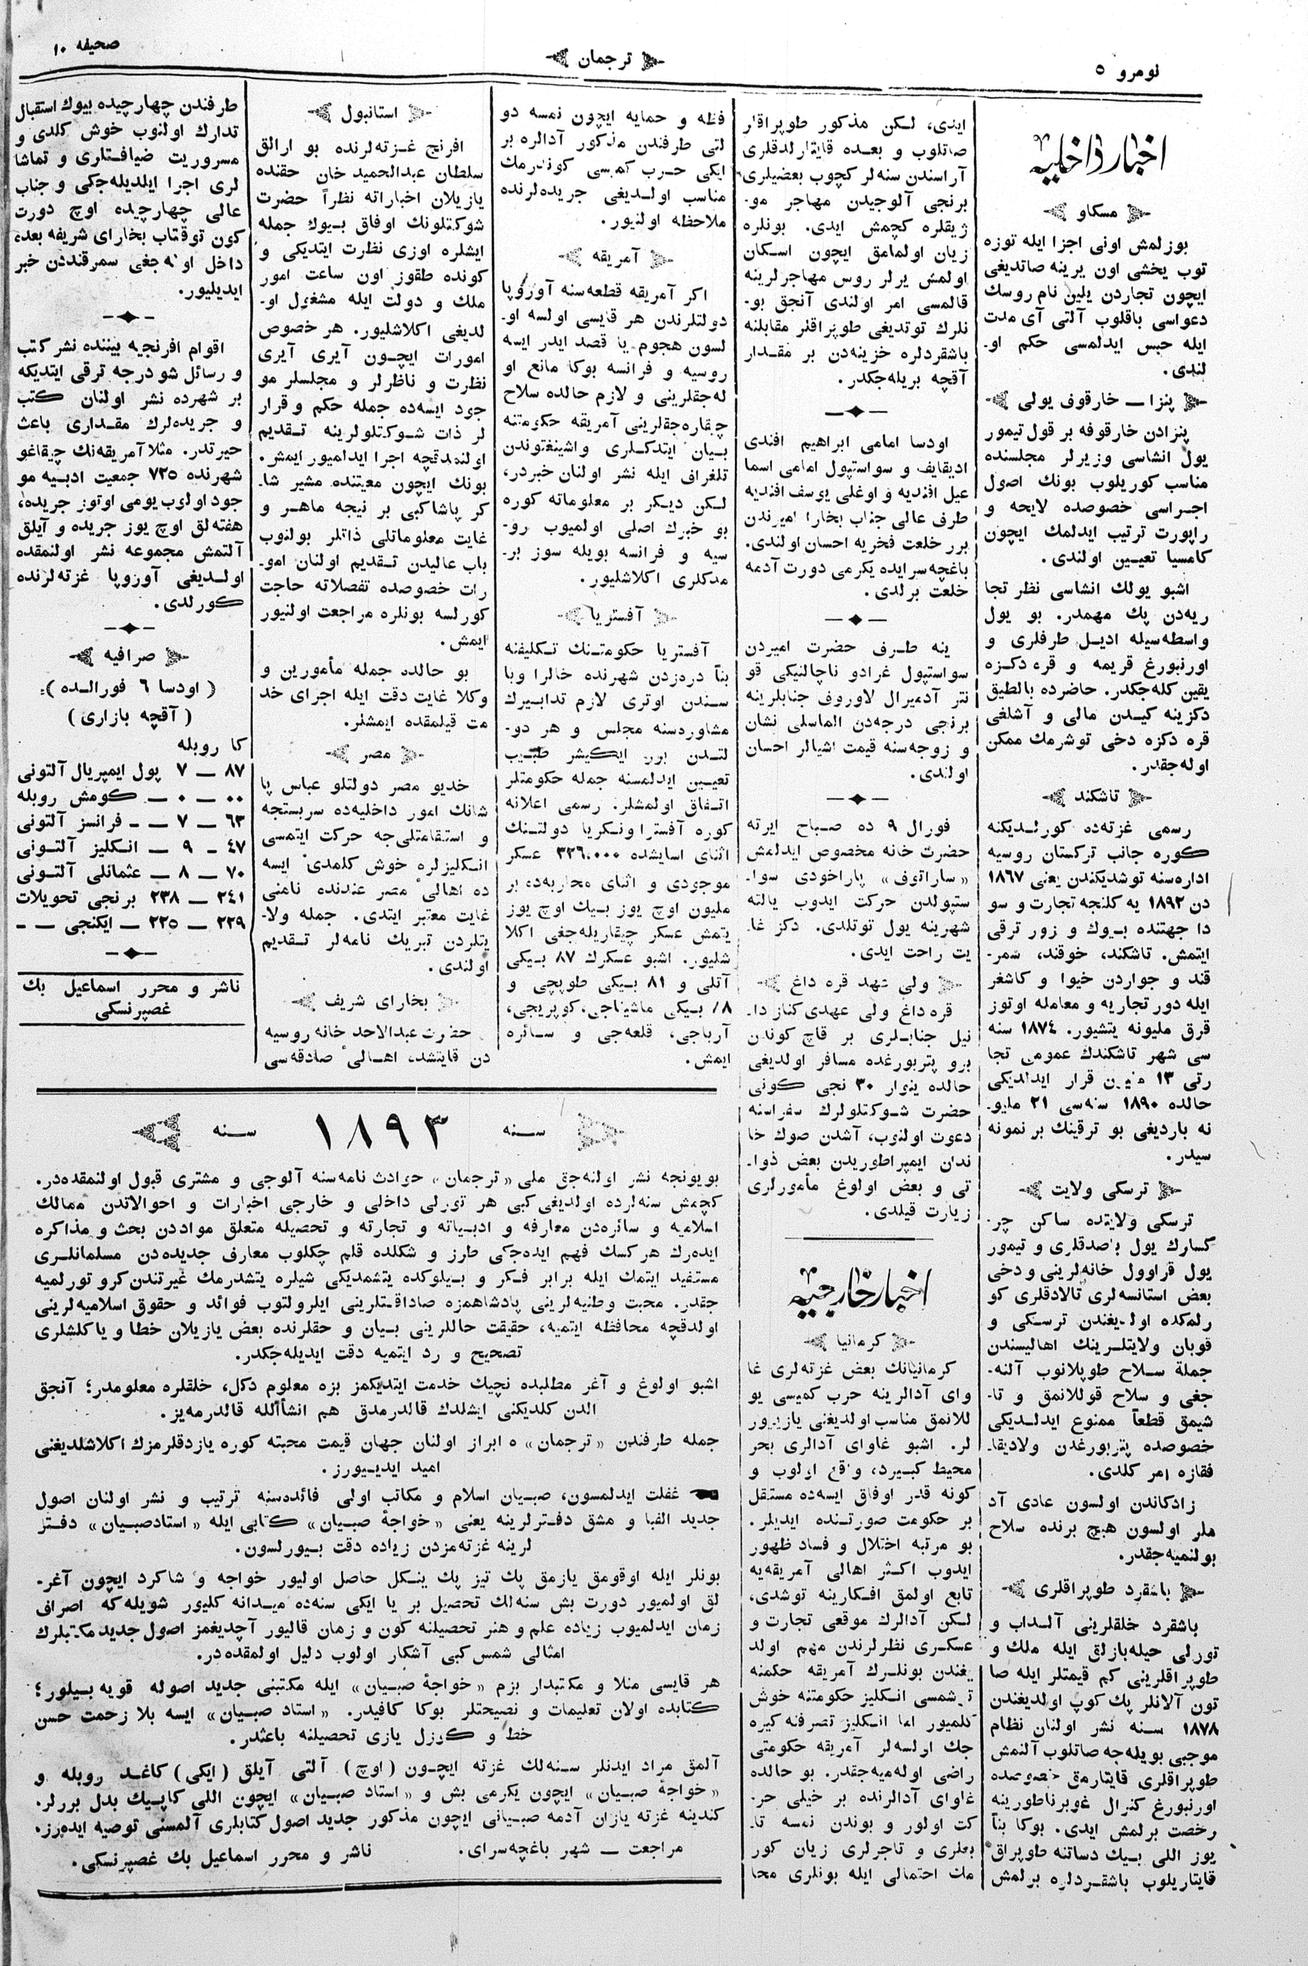 نومرو ٥
ترجمان
صحيفه ١٠
اخبار داخليه
مسكاو
بوزلمش اونی اجزا ايله توزه
توب يخشی اون يرينه صاتديغی
ايچون تجاردن يلين نام روسك
دعواسی باقلوب آلتی آی مدت
ايله حبس ايدلمسی حكم او-
لندی.
پنزا — خارقوف يولی
پنزادن خارقوفه بر قول تيمور
يول انشاسی وزيرلر مجلسنده
مناسب كوريلوب بونك اصول
اجراسی خصوصده لايحه و
راپورت ترتيب ايدلمك ايچون
كامسيا تعيين اولندی.
اشبو يولك انشاسی نظر تجا
ريه‌دن پك مهمدر. بو يول
واسطه‌سيله اديل طرفلری و
اورنبورغ قريمه و قره دكزه
يقين كله‌جكدر. حاضرده بالطيق
دكزينه كيدن مالی و آشلغی
قره دكزه دخی توشرمك ممكن
اوله‌جقدر.
تاشكند
رسمی غزته‌ده كورلديكنه
كوره جانب تركستان روسيه
اداره‌سنه توشديكندن يعنی ١٨٦٧
دن ١٨٩٢ يه كلنجه تجارت و سو
دا جهتنده بيوك و زور ترقی
ايتمش. تاشكند، خوقند، سمر-
قند و جواردن خيوا و كاشغر
ايله دور تجاريه و معامله اوتوز
قرق مليونه يتشيور. ١٨٧٤ سنه
سی شهر تاشكندك عمومی تجا
رتی ١٣ مليون قرار ايدلديكی
حالده ١٨٩٠ سنه‌سی ٢١ مليو-
نه بارديغی بو ترقينك بر نمونه
سيدر.
ترسكی ولايت
ترسكی ولايتده ساكن چر-
كسلرك يول باصدقلری و تيمور
يول قراوول خانه‌لرينی و دخی
بعض استانسه‌لری تالادقلری كو
رلمكده اولديغندن ترسكی و
قوبان ولايتلرينك اهاليسندن
جملة سلاح طوپلانوب آلنه-
جغی و سلاح قوللانمق و تا-
شيمق قطعاً ممنوع ايدلديكی
خصوصده پتربورغدن ولاديقا-
فقازه امر كلدی.
زادكاندن اولسون عادی آد
ملر اولسون هيچ برنده سلاح
بولنميه‌جقدر.
باشقرد طوپراقلری
باشقرد خلقلرينی آلداب و
تورلی حيله‌بازلق ايله ملك و
طوپراقلرينی كم قيمتلر ايله صا
تون آلانلر پك كوپ اولديغندن
١٨٧٨ سنه نشر اولنان نظام
موجبی بويله‌جه صاتلوب آلنمش
طوپراقلری قايتارمق خصوصده
اورنبورغ كنرال غوبرناطورينه
رخصت برلمش ايدی. بوكا بناً
يوز اللی بيك دساتنه طوپراق
قايتاريلوب باشقردلره برلمش
ايدی، لكن مذكور طوپراقلر
صاتلوب و بعده قايتارلدقلری
آراسندن سنه‌لر كچوب بعضيلری
برنجی آلوجيدن مهاجر مو-
ژيقلره كچمش ايدی. بونلره
زيان اولمامق ايچون اسكان
اولمش يرلر روس مهاجرلرينه
قالمسی امر اولندی آنجق بو-
نلرك توتديغی طوپراقلر مقابلنه
باشقردلره خزينه‌دن بر مقدار
آقچه بريله‌جكدر.
اودسا امامی ابراهيم افندی
اديقايف و سواستپول امامی اسما
عيل افنديه و اوغلی يوسف افنديه
طرف عالی جناب بخارا اميرندن
برر خلعت فخريه احسان اولندی.
باغچه‌سرايده يكرمی دورت آدمه
خلعت برلدی.
ينه طرف حضرت اميردن
سواستپول غرادو ناچالنيكی قو
نتر آدميرال لاوروف جنابلرينه
برنجی درجه‌دن الماسلی نشان
و زوجه‌سنه قيمت اشيالر احسان
اولندی.
فورال ٩ ده صباح ايرته
حضرت خانه مخصوص ايدلمش
«ساراتوف» پاراخودی سوا-
ستپولدن حركت ايدوب يالته
شهرينه يول توتلدی. دكز غا-
يت راحت ايدی.
ولی عهد قره داغ
قره‌داغ ولی عهدی كناز دا-
نيل جنابلری بر قاچ كوندن
برو پتربورغده مسافر اولديغی
حالده ينوار ٣٠ نجی كونی
حضرت شوكتلولرك سفراسنه
دعوت اولنوب، آشدن صوك خا
ندان ايمپراطوريدن بعض ذوا-
تی و بعض اولوغ مأمورلری
زيارت قيلدی.
اخبار خارجيه
كرمانيا
كرمانيانك بعض غزته‌لری غا
وای آدالرينه حرب كميسی يو
للانمق مناسب اولديغنی يازيور
لر. اشبو غاوای آدالری بحر
محيط كبيرده، واقع اولوب و
كونه قدر اوفاق ايسه‌ده مستقل
بر حكومت صورتنده ايديلر.
بو مرتبه اختلال و فساد ظهور
ايدوب اكثر اهالی آمريقه‌يه
تابع اولمق افكارينه توشدی،
لكن آدالرك موقعی تجارت و
عسكری نظرلرندن مهم اولد
يغندن بونلرك آمريقه حكمنه
توشمسی انكليز حكومتنه خوش
كلميور اما انكليز تصرفنه كيره
جك اولسه‌لر آمريقه حكومتی
راضی اوله‌ميه‌جقدر. بو حالده
غاوای آدالرنده بر خيلی حر-
كت اولور و بوندن نمسه تا-
بعلری و تاجرلری زيان كور
مك احتمالی ايله بونلری محا
فظه و حمايه ايچون نمسه دو
لتی طرفندن مذكور آدالره بر
ايكی حرب كميسی كوندرمك
مناسب اولديغی جريده‌لرنده
ملاحظه اولنيور.
آمريقه
اكر آمريقه قطعه‌سنه آوروپا
دولتلرندن هر قايسی اولسه او-
لسون هجوم يا قصد ايدر ايسه
روسيه و فرانسه بوكا مانع او
له‌جقلرينی و لازم حالده سلاح
چيقاره‌جقلرينی آمريقه حكومتنه
بيان ايتدكلری واشينغتوندن
تلغراف ايله نشر اولنان خبردر،
لكن ديكر بر معلوماته كوره
بو خبرك اصلی اولميوب رو-
سيه و فرانسه بويله سوز بر-
مدكلری اكلاشليور.
آفستريا
آفستريا حكومتنك تكليفنه
بناً دره‌زدن شهرنده خالرا وبا
سندن اوتری لازم تدابيرك
مشاورده‌سنه مجلس و هر دو-
لتدن برر ايكيشر طبيب
تعيين ايدلمسنه جمله حكومتلر
اتفاق اولمشلر. رسمی اعلانه
كوره آفستراونكريا دولتنك
اثنای اسايشده ٣٢٦٠٠٠ عسكر
موجودی و اثنای محاربه‌ده بر
مليون اوچ يوز بيك اوچ يوز
يتمش عسكر چيقاريله‌جغی اكلا
شليور. اشبو عسكرك ٨٧ بيكی
آتلی و ٨١ بيكی طوپچی و
بيكی ماشيناجی، كوپريجی،
آرباجی، قلعه‌جی و سائره
ايمش.
استانبول
افرنج غزته‌لرنده بو ارالق
سلطان عبدالحميد خان حقنده
يازيلان اخباراته نظراً حضرت
شوكتلونك اوفاق بيوك جمله
ايشلره اوزی نظرت ايتديكی و
كونده طقوز اون ساعت امور
ملك و دولت ايله مشغول او-
لديغی اكلاشليور. هر خصوص
امورات ايچون آيری آيری
نظرت و ناظرلر و مجلسلر مو
جود ايسه‌ده جمله حكم و قرار
لر ذات شوكتلولرينه تقديم
اولنمدقچه اجرا ايدلميور ايمش.
بونك ايچون معيتنده مشير شا-
كر پاشا كبی بر نيچه ماهر و
غايت معلوماتلی ذاتلر بولنوب
باب عاليدن تقديم اولنان امو-
رات خصوصده تفصلاته حاجت
كورلسه بونلره مراجعت اولنيور
ايمش.
بو حالده جمله مأمورين و
وكلا غايت دقت ايله اجرای خد
مت قيلمقده ايمشلر.
مصر
خديو مصر دولتلو عباس پا
شانك امور داخليه‌ده سربستجه
و استقامتلی‌جه حركت ايتمسی
انكليزلره خوش كلمدی ايسه
ده اهالیٔ مصر عندنده نامنی
غايت معتبر ايتدی. جمله ولا-
يتلردن تبريك نامه‌لر تقديم
اولندی.
بخارای شريف
حضرت عبدالاحد خانه روسيه
دن قايتشده، اهالیٔ صادقه‌سی
طرفندن چهارچيده بيوك استقبال
تدارك اولنوب خوش كلدی و
مسروريت ضيافتلری و تماشا
لری اجرا ايلديله‌جكی و جناب
عالی چهارچيده اوچ دورت
كون توقتاب بخارای شريفه بعده
داخل اوله‌جغی سمرقنددن خبر
ايديليور.
اقوام افرنجيه بيننده نشر كتب
و رسائل شو درجه ترقی ايتديكه
بر شهرده نشر اولنان كتب
و جريده‌لرك مقداری باعث
حيرتدر. مثلا آمريقه‌نك چيقاغو
شهرنده ٧٢٥ جمعيت ادبيه مو
جود اولوب يومی اوتوز جريده،
هفته‌لق اوچ يوز جريده و آيلق
آلتمش مجموعه نشر اولنمقده
اولديغی آوروپا غزته‌لرنده
كورلدی.
صرافيه
(اودسا ٦ فورالده):
(آقچه بازاری)
كا روبله
٨٧ — ٧ پول ايمپريال آلتونی
٠٠ — ٠ — كومش روبله
٦٣ — ٧ — - فرانسز آلتونی
٤٧ - ٩ — انكليز آلتونی
٧٠ — ٨ — عثمانلی آلتونی
٢٤١ — ٢٣٨ برنجی تحويلات
٢٢٩ — ٢٢٥ — ايكنجی — -
ناشر و محرر اسماعيل بك
غصپرنسكی
سنه ١٨٩٣ سنه
بويونجه نشر اولنه‌جق ملی «ترجمان» حوادث نامه‌سنه آلوجی و مشتری قبول اولنمقده‌در.
كچمش سنه‌لرده اولديغی كبی هر تورلی داخلی و خارجی اخبارات و احوالاتدن ممالك
اسلاميه و سائره‌دن معارفه و ادبياته و تجارته و تحصيله متعلق مواددن بحث و مذاكره
ايده‌رك هر كسك فهم ايده‌جكی طرز و شكلده قلم چكلوب معارف جديده‌دن مسلمانلری
مستفيد ايتمك ايله برابر فكر و بيلوكده يتشمديكی شيلره يتشدرمك غيرتندن كرو تورلميه
جقدر. محبت وطنيه‌لرينی پادشاهمزه صداقتلرينی ايلرولتوب فوائد و حقوق اسلاميه‌لرينی
اولدقچه محافظه ايتميه، حقيقت حاللرينی بيان و حقلرنده بعض يازيلان خطا و ياكلشلری
تصحيح و رد ايتميه دقت ايديله‌جكدر.
اشبو اولوغ و آغر مطلبده نچيك خدمت ايتديكمز بزه معلوم دكل، خلقلره معلومدر؛ آنجق
الدن كلديكنی ايشلدك قالدرمدق هم انشاألله قالدرمه‌يز.
جمله طرفندن «ترجمان» ه ابراز اولنان جهان قيمت محبته كوره يازدقلرمزك اكلاشلديغنی
اميد ايديورز.
غفلت ايدلمسون، صبيان اسلام و مكاتب اولی فائده‌سنه ترتيب و نشر اولنان اصول
جديد الفبا و مشق دفترلرينه يعنی «خواجهٔ صبيان» كتابی ايله «استاد صبيان» دفتر
لرينه غزته‌مزدن زياده دقت بيورلسون.
بونلر ايله اوقومق يازمق پك تيز پك ينكل حاصل اوليور خواجه و شاكرد ايچون آغر-
لق اولميور دورت بش سنه‌لك تحصيل بر يا ايكی سنه‌ده ميدانه كليور شويله‌كه اصراف
زمان ايدلميوب زياده علم و هنر تحصيلنه كون و زمان قاليور آچديغمز اصول جديد مكتبلرك
امثالی شمس كبی آشكار اولوب دليل اولمقده‌در.
هر قايسی منلا و مكتبدار بزم «خواجهٔ صبيان» ايله مكتبنی جديد اصوله قويه بيلور؛
كتابده اولان تعليمات و نصيحتلر بوكا كافيدر. «استاد صبيان» ايسه بلا زحمت حسن
خط و كوزل يازی تحصيلنه باعثدر.
آلمق مراد ايدنلر سنه‌لك غزته ايچون (اوچ) آلتی آيلق (ايكی) كاغد روبله و
«خواجهٔ صبيان» ايچون يكرمی بش و «استاد صبيان» ايچون اللی كاپيك بدل بررلر.
كندينه غزته يازان آدمه صبيانی ايچون مذكور جديد اصول كتابلری آلمسنی توصيه ايده‌رز.
مراجعت — شهر باغچه‌سرای.
ناشر و محرر اسماعيل بك غصپرنسكی.